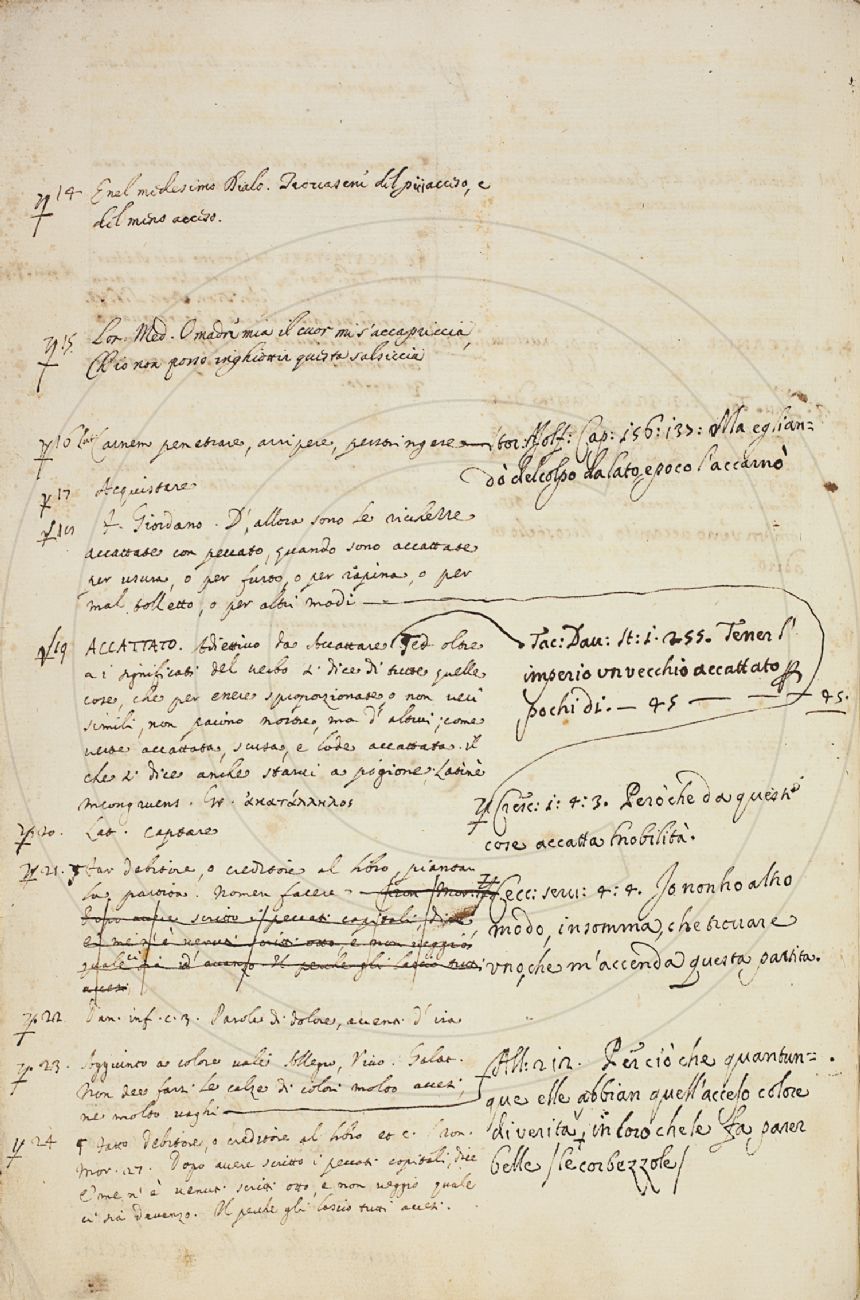 14 E nel medesimo Dialo. Trovasene del più acceso, e
del meno acceso.
15 Lor. Med. O madre mia il cuor mi s'accapriccia,
Ch'io non posso inghiottir questa salsiccia
16 Lat. Carnem penetrare, arripere, perstringere
Stor: Aiolf: Cap: 156: 137: Ma eglian=
dò del colpo da lato, e poco l'accarnò
17 Acquistare
18 F. Giordano. D'allora sono le ricchezze
accattate con peccato, quando sono accattate
per usura, o per furto, o per rapina, o per
mal tolletto, o per altri modi
19 ACCATTATO. Adiettivo da Accattare Ed oltre
a i significati del verbo si dice di tutte quelle
cose, che per essere sproporzionate, o non veri
simili, non paiono nostre, ma d'altrui; come
accattata, scusa, e lode accattata. il
che si dice anche starci a pigione, Latinè
incongruens. Gr. ἀκατάλληλος
Tac: Dav: St: 1. 255. Tener l'
imperio un vecchio accattato
pochi dì. — 45 — 45.
Cresc: 1: 4: 3. Però che da queste
cose accatta nobilità.
20. Lat. captare
21. Far debitore, o creditore al libro, piantar
la partita. Nomen facere - Fran: Mor:
dopo avere scritto i peccati capitali, dice
E me n'è venuti scritti otto, e non veggio
quale ci sia d'avanzo. Il perchè gli lascio tutti
accesi,
Cecc: servi: 4: 4. Io non ho altro
modo, insomma, che trovare
uno, che m'accenda questa partita.
22. Dan. inf. c. 3. Parole di dolore, accenti d'ira
23. Aggiunto a colore vale Allegro, Vivo. Galat.
Non dee farsi le calze di colori molto accesi,
ne molto vaghi
All: 212. Perciò che quantun=
que elle abbian quell'acceso colore
di verità, in loro che le fa parer
belle /le corbezzole/
24 ¶ Fatto debitore, o creditore al libro et c. Fran.
Mor. 27. Dopo avere scritto i peccati capitali, dice
E me n'è venuti scritti otto, e non veggio quale
ci sia d'avanzo. Il perchè gli lascio tutti accesi.